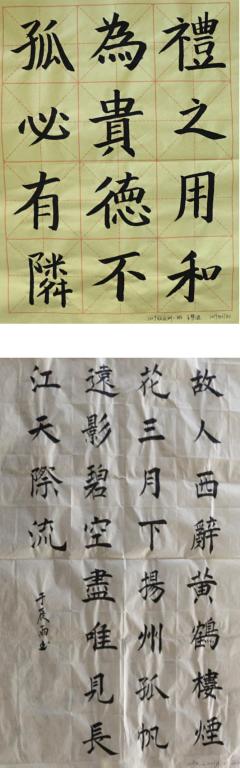 禮之用和
為貴德不
孤必有隣
故人西辭黃鶴樓煙
花三月下揚州孤帆
遠影碧空盡唯見長
江天際流